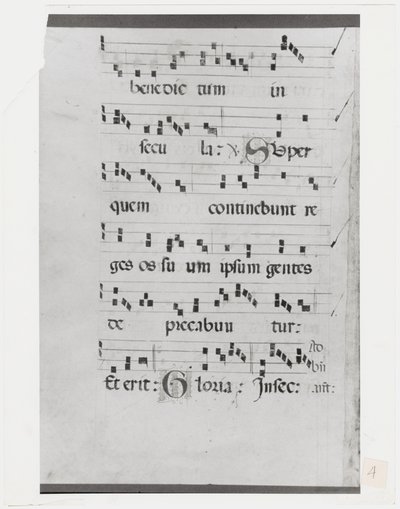 benedic tum in
secu la: ℣. Super
quem continebunt re
ges os su um ipsum gentes
de precabuu tur:
Et erit: Gloria: Insec:
4